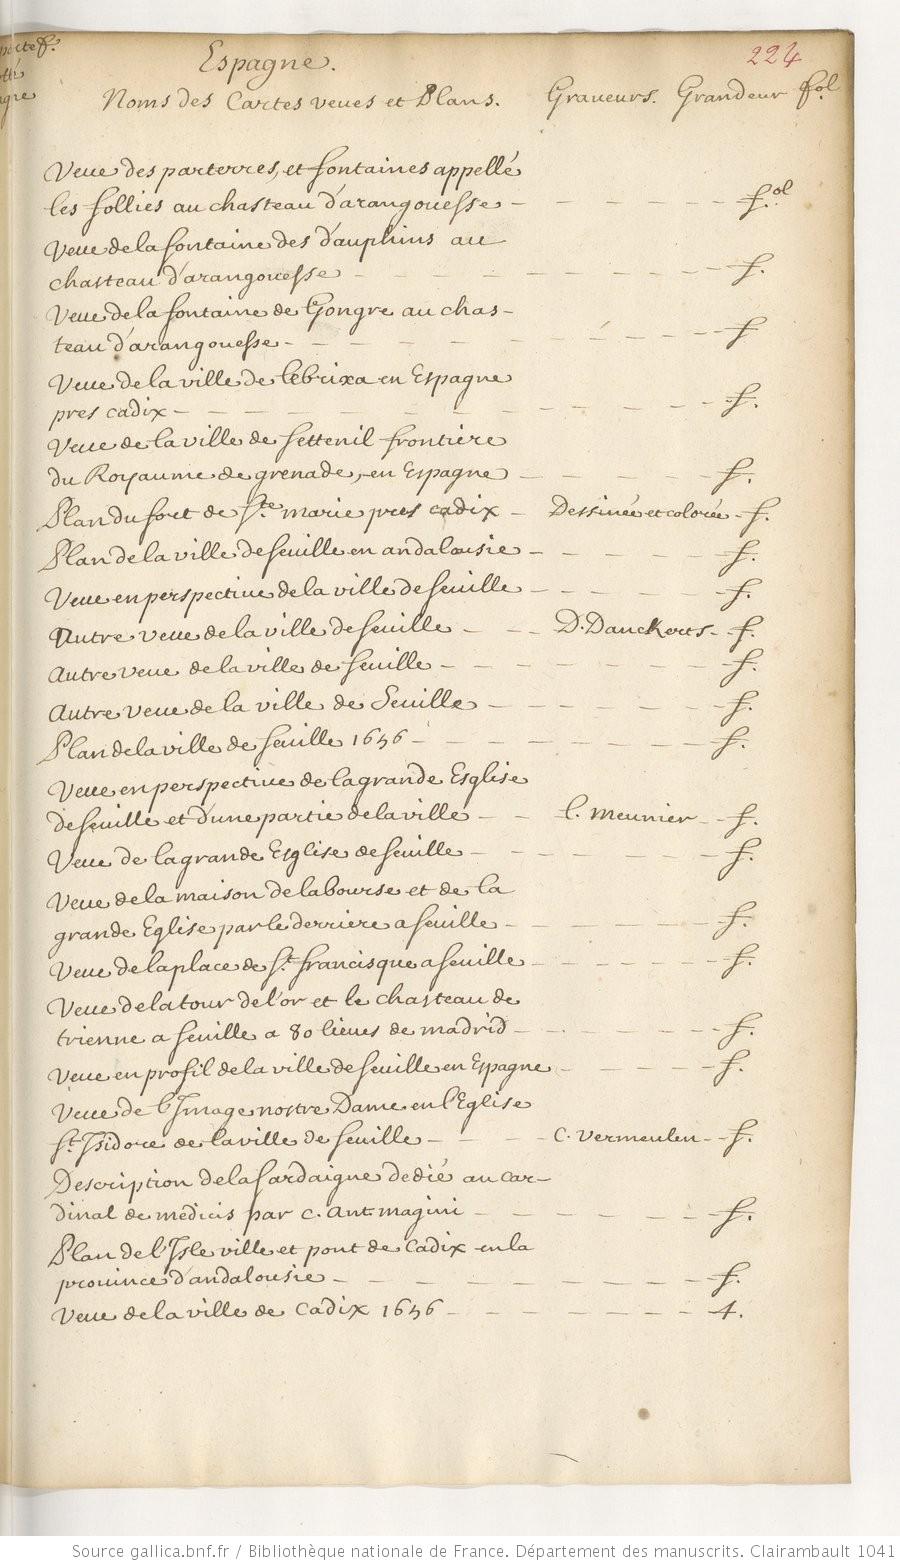 Espagne.
224
Noms des Cartes veues et Plans. Graveurs. Grandeur fol
Veue des parterres, et fontaines appellé
les follies au chasteau d'arangouesse - - - - - - f.ol
Veue de la fontaine des d'auphins au
chasteau d'arangouesse - - - - - - f.
Veue de la fontaine de Gongre au chas-
teau d'arangouesse - - - - - - f
Veue de la ville de lebrixa en Espagne
pres cadix - - - - - - f.
Veue de la ville de settenil frontiere
du Royaume de grenade, en Espagne - - - - - - f.
Plan du fort de Ste. marie pres cadix - Dessinée et colorée - f.
Plan de la ville de seuille en andalousie - - - - - - f.
Veue en perspectiue de la ville de seuille - - - - - - f.
Autre veue de la ville de seuille - - - D. Danckerts - f.
Autre veue de la ville de seuille - - - - - - f.
Autre Veue de la ville de Seuille - - - - - - f.
Plan de la ville de seuille 1656 - - - - - - f.
Veue en perspectiue de la grande Esglise
de seuille et d'une partie de la ville - - l. meunier - - f.
Veue de la grande Esglise de seuille - - - - - - f.
Veue de la maison de la bourse et de la
grande Eglise par le derriere a seuille - - - - - - f.
Veue de la place de St. francisque a seuille - - - - - - f.
Veue de la tour de l'or et le chasteau de
trienne a seuille a 80 lieues de madrid - - - - - - f.
Veue en profil de la ville de seuille en Espagne - - - - - f.
Veue de l'Image nostre Dame en l'Eglise
St. Isidore de la ville de seuille - - - c. vermeulen - - f.
Description de la sardaigne dedié au car-
dinal de medicis par c. Ant. magini - - - - - - f.
Plan de l'Isle ville et pont de cadix en la
prouince d'andalousie - - - - - - f.
Veue de la ville de cadix 1656 - - - - - - 4.
Source gallica.bnf.fr / Bibliothèque nationale de France. Département des manuscrits. Clairambault 1041